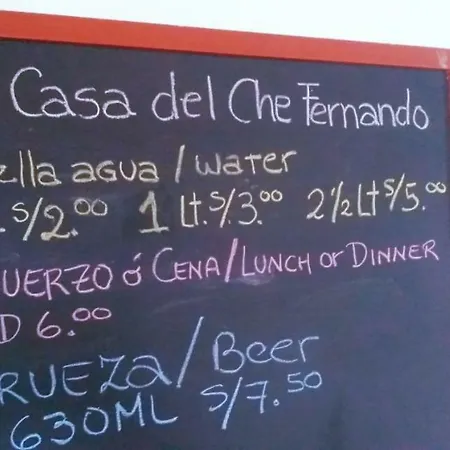 Casa del Che Fernando
ella agua / water
. S/2.00 1 Lt. S/.3.00 2 ½ Lt S/5.00
UERZO ó CENA / LUNCH or DINNER
D 6.00
RUEZA / Beer
630ML S/7.50